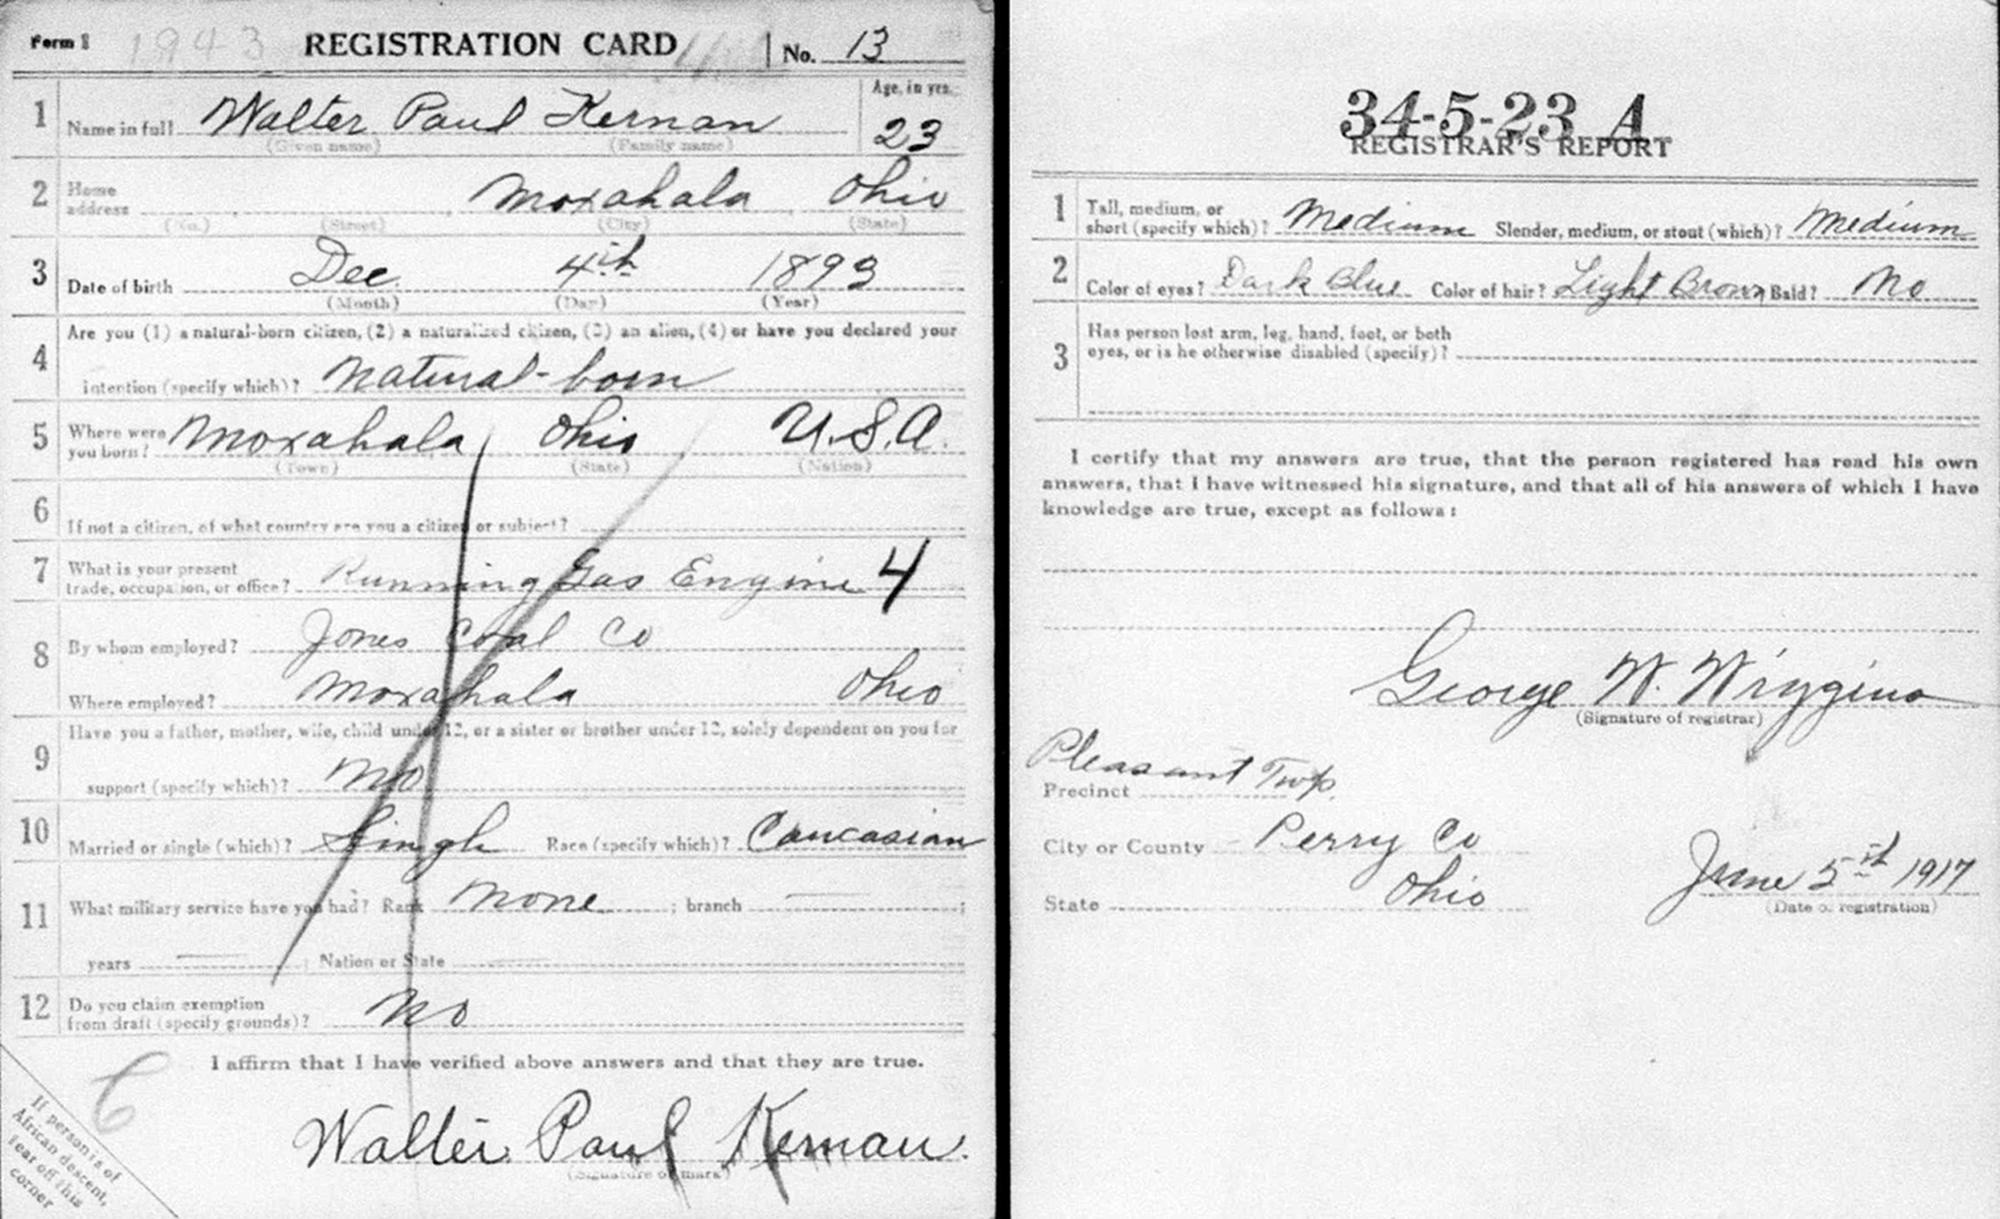 Form 1 1943 REGISTRATION CARD No. 13
1 Name in full Walter Paul Kernan Age, in yrs. 23
(Given name) (Family name)
2 Home address Moxahala Ohio
(No.) (Street) (City) (State)
3 Date of birth Dec. 4th 1893
(Month) (Day) (Year)
4 Are you (1) a natural-born citizen, (2) a naturalized citizen, (3) an alien, (4) or have you declared your
intention (specify which)? Natural-born
5 Where were you born? Moxahala Ohio U.S.A.
(Town) (State) (Nation)
6 If not a citizen, of what country are you a citizen or subject?
7 What is your present
trade, occupation, or office? Running Gas Engine 4
8 By whom employed? Jones Coal Co
Where employed? Moxahala Ohio
9 Have you a father, mother, wife, child under 12, or a sister or brother under 12, solely dependent on you for
support (specify which)? No
10 Married or single (which)? Single Race (specify which)? Caucasian
11 What military service have you had? Rank None ; branch ;
years ; Nation or State
12 Do you claim exemption
from draft (specify grounds)? No
I affirm that I have verified above answers and that they are true.
Walter Paul Kernan.
(Signature or mark)
C
If person is of
African descent,
tear off this
corner
34-5-23 A
REGISTRAR'S REPORT
1 Tall, medium, or
short (specify which)? Medium Slender, medium, or stout (which)? Medium
2 Color of eyes? Dark Blue Color of hair? Light Brown Bald? No
3 Has person lost arm, leg, hand, foot, or both
eyes, or is he otherwise disabled (specify)?
I certify that my answers are true, that the person registered has read his own
answers, that I have witnessed his signature, and that all of his answers of which I have
knowledge are true, except as follows:
George W. Wiggins
(Signature of registrar)
Precinct Pleasant Twp.
City or County Perry Co
State Ohio June 5th 1917
(Date of registration)